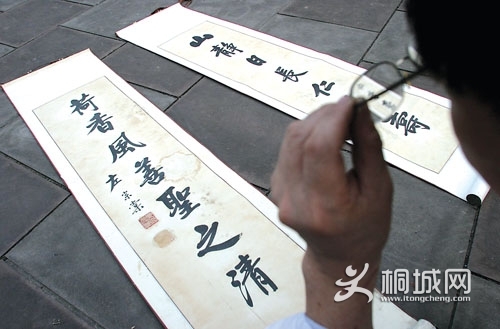 山静日長仁
寿
荷香風善聖之清
左宗棠
桐城网
www.itongcheng.com